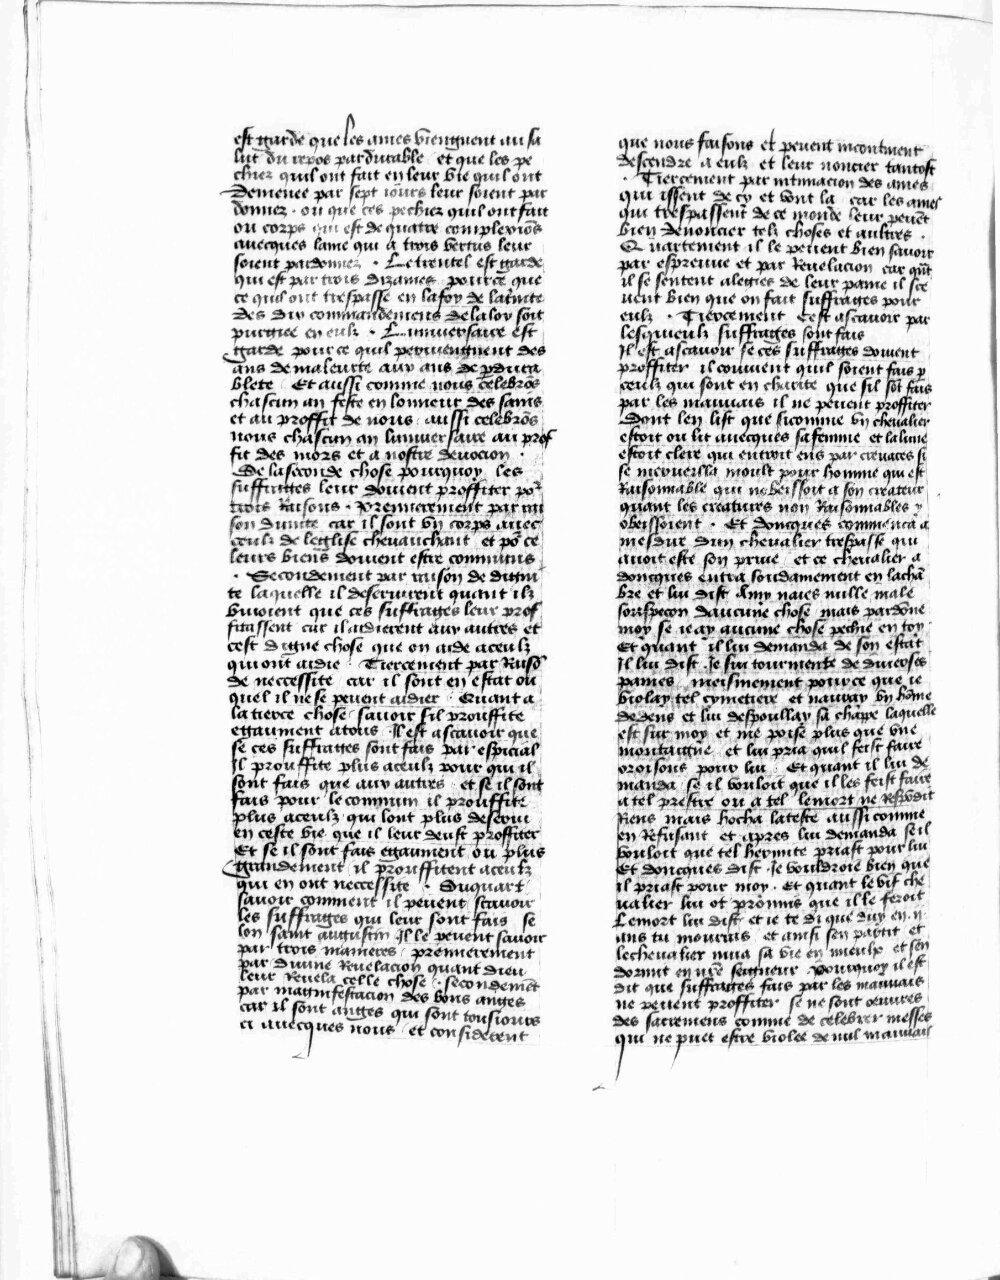 est garde que les ames viengnent au sa
lut du repos pardurable et que les pe
chiez quil ont fait en leur vie quil ont
demenee par sept iours leur soient par
donnez · ou que ces pechiez quil ont fait
ou corps qui est de quatre complexiōs
auecques lame qui a trois vertus leur
soient pardonnez · Le trentel est garde
qui est par trois dizaines pource que
ce quil ont trespasse en la foy de la trinite
des dix commandemens de la loy soit
purgiee en eulz · Lanniuersaire est
garde pource quil peruiengnent des
ans de maleurte aux ans de pdura
blete Et aussi comme nous celebrōs
chascun an feste en lonneur des sains
et au proffit de nous aussi celebrōs
nous chascun an lanniuersaire au prof
fit des mors et a nostre deuocion ·
De la seconde chose pourquoy les
suffrages leur doiuent proffiter po^r
trois Raisons · Premierement par rai
son dunite car il sont vn corps auec
ceulx de leglise cheuauchant et po^r ce
leurs biens doiuent estre communs
· Secondement par raison de digni
te laquelle il deseruirent quant ilz
viuoient que ces suffrages leur prof
fitassent car il aidierent aux autres et
cest digne chose que on aide a ceulz
qui ont aidie Tiercement par Raisō
de neccessite car il sont en estat ou
quel il ne se peuent aidier · Quant a
la tierce chose sauoir sil prouffite
egaument a tous Il est ascauoir que
se ces suffrages sont fais par especial
Il prouffite plus a ceulz pour qui il
sont fais que aux autres et se il sont
fais pour le commun il prouffite
plus a ceulz qui lont plus deserui
en ceste vie que il leur deust proffiter
Et se il sont fais egaument ou plus
grandement il prouffitent a ceulz
qui en ont neccessite · Du quart
sauoir comment il peuent scauoir
les suffrages qui leur sont fais se
lon saint augustin Il le peuent sauoir
par trois manieres premierement
par diuine Reuelacion quant dieu
leur Reuela celle chose · secondemēt
par magnifestacion des bons anges
car il sont anges qui sont tousiours
ci auecques nous et considerent
que nous faisons et peuent incontinent
descendre a eulz et leur noncier tantost
· Tiercement par intimacion des ames
qui issent de cy et vont la car les ames
qui trespassent de ce monde leur peuēt
bien denoncier telz choses et aultres ·
Quartement il le peuent bien sauoir
par espreuue et par Reuelacion car quāt
il se sentent alegies de leur paine il sce
uent bien que on fait suffrages pour
eulz · Tiercement Cest ascauoir par
lesquieulx suffrages sont fais
Il est ascauoir se ces suffrages doiuent
proffiter il couuient quil soient fais p
ceulz qui sont en charite que sil sōt fais
par les mauuais il ne peuent proffiter
Dont len list que sicomme vn cheualier
estoit ou lit auecques sa femme et la lune
estoit clere qui entroit ens par creuaces si
se merueilla moult pour homme qui est
Raisonnable qui nobeissoit a son createur
quant les creatures non Raisonnables y
obeissoient · Et doncques commenca a
mesdire dun cheualier trespasse qui
auoit este son priue et ce cheualier a
doncques entra soudainement en la chā
bre et lui dist Amy naies nulle male
souspecon daucune chose mais pardōne
moy se ie ay aucune chose pechie en toy
Et quant il lui demanda de son estat
Il lui dist Je sui tourmente de diuerses
paines meismement pource que ie
violay tel cymetiere et nauray vn hōme
dedens et lui despoullay sa chape laquelle
est sur moy et me poise plus que vne
montaigne et lui pria quil feist faire
oroisons pour lui · Et quant il lui de
manda se il vouloit que il les feist faire
a tel prestre ou a tel le mort ne Respōdit
Riens mais hocha la teste aussi comme
en Refusant et apres lui demanda se il
vouloit que tel hermite priast pour lui
Et doncques dist Je vouldroie bien que
il priast pour moy · Et quant le vif che
ualier lui ot promis que il le feroit
Le mort lui dist et ie te di que duy en .ii
ans tu mourras et ainsi sen partit et
le cheualier mua sa vie en mieulx et sen
dormit en nr̄e seigneur Pourquoy il est
dit que suffrages fais par les mauuais
ne peuent proffiter se ne sont oeuures
des sacremens comme de celebrer messes
qui ne puet estre violee de nul mauuais